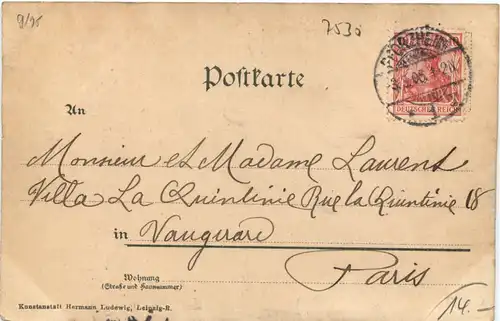 9/95
7530
PFORZHEIM
DEUTSCHES REICH
Postkarte
An
Monsieur et Madame Laurens
Villa La Quintinie Rue la Quintinie 18
in Vaugirare
Paris
Wohnung
(Straße und Hausnummer)
Kunstanstalt Hermann Ludewig, Leipzig-R.
14.-